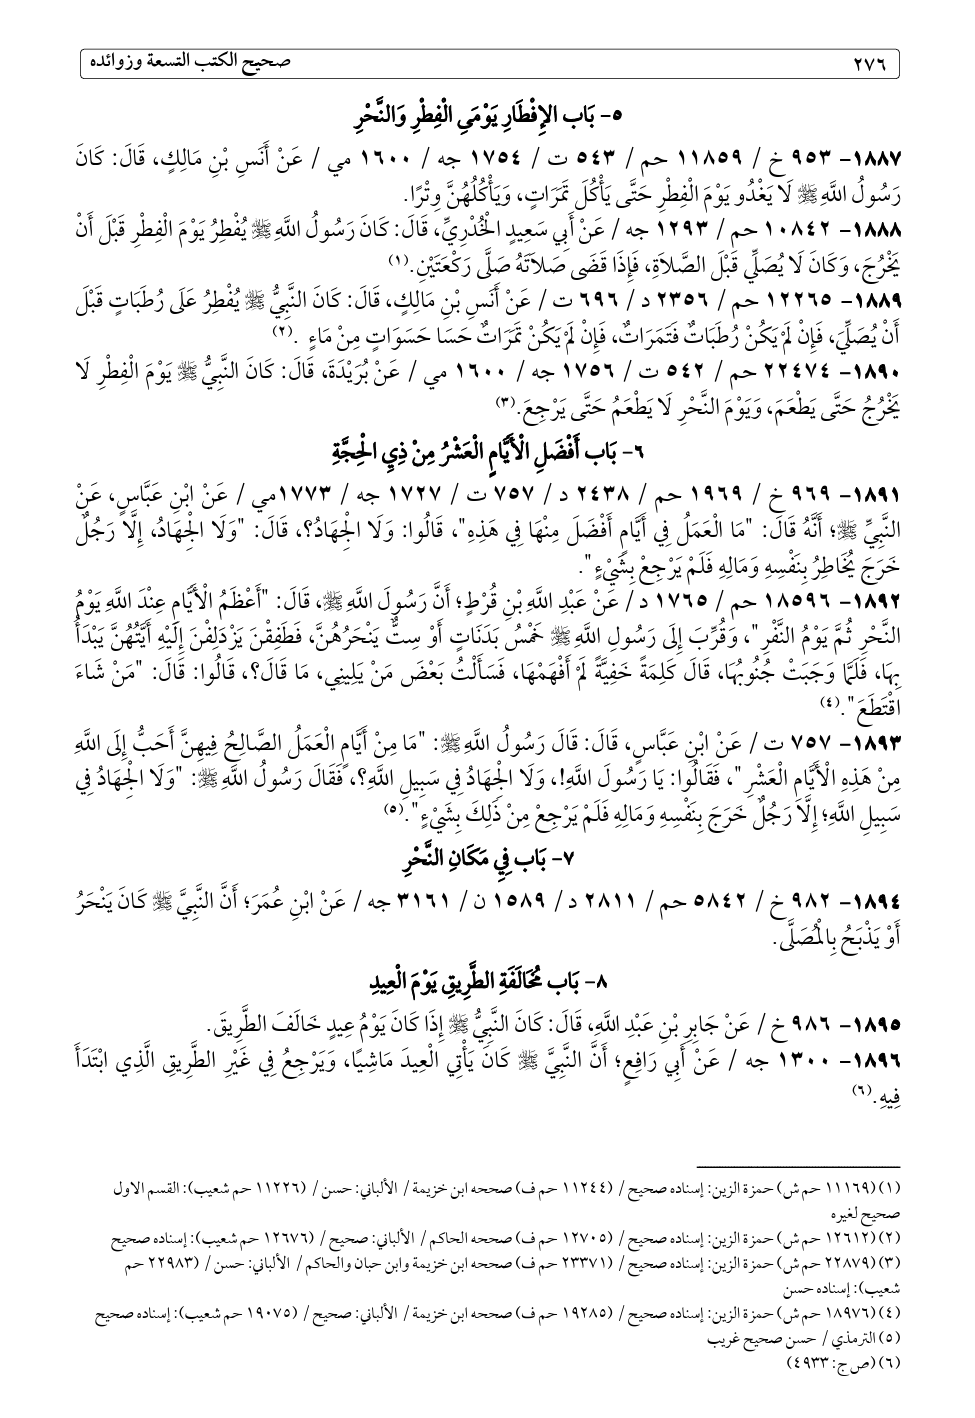 ٢٧٦ صحيح الكتب التسعة وزوائده
٥- بَاب الإِفْطَارِ يَوْمَيِ الْفِطْرِ وَالنَّحْرِ
١٨٨٧- ٩٥٣ خ / ١١٨٥٩ حم / ٥٤٣ ت / ١٧٥٤ جه / ١٦٠٠ مي / عَنْ أَنَسِ بْنِ مَالِكٍ، قَالَ: كَانَ
رَسُولُ اللَّهِ ﷺ لَا يَغْدُو يَوْمَ الْفِطْرِ حَتَّى يَأْكُلَ تَمَرَاتٍ، وَيَأْكُلُهُنَّ وِتْرًا.
١٨٨٨- ١٠٨٤٢ حم / ١٢٩٣ جه / عَنْ أَبِي سَعِيدٍ الْخُدْرِيِّ، قَالَ: كَانَ رَسُولُ اللَّهِ ﷺ يُفْطِرُ يَوْمَ الْفِطْرِ قَبْلَ أَنْ
يَخْرُجَ، وَكَانَ لَا يُصَلِّي قَبْلَ الصَّلاَةِ، فَإِذَا قَضَى صَلاَتَهُ صَلَّى رَكْعَتَيْنِ.(١)
١٨٨٩- ١٢٢٦٥ حم / ٢٣٥٦ د/ ٦٩٦ ت / عَنْ أَنَسِ بْنِ مَالِكٍ، قَالَ: كَانَ النَّبِيُّ ﷺ يُفْطِرُ عَلَى رُطَبَاتٍ قَبْلَ
أَنْ يُصَلِّيَ، فَإِنْ لَمْ يَكُنْ رُطَبَاتٌ فَتَمَرَاتٌ، فَإِنْ لَمْ يَكُنْ تَمَرَاتٌ حَسَا حَسَوَاتٍ مِنْ مَاءٍ .(٢)
١٨٩٠- ٢٢٤٧٤ حم / ٥٤٢ ت / ١٧٥٦ جه / ١٦٠٠ مي / عَنْ بُرَيْدَةَ، قَالَ: كَانَ النَّبِيُّ ﷺ يَوْمَ الْفِطْرِ لَا
يَخْرُجُ حَتَّى يَطْعَمَ، وَيَوْمَ النَّحْرِ لَا يَطْعَمُ حَتَّى يَرْجِعَ.(٣)
٦- بَاب أَفْضَلِ الْأَيَّامِ الْعَشْرُ مِنْ ذِي الْحِجَّةِ
١٨٩١- ٩٦٩ خ / ١٩٦٩ حم / ٢٤٣٨ د / ٧٥٧ ت / ١٧٢٧ جه / ١٧٧٣مي / عَنْ ابْنِ عَبَّاسٍ، عَنْ
النَّبِيِّ ﷺ؛ أَنَّهُ قَالَ: "مَا الْعَمَلُ فِي أَيَّامٍ أَفْضَلَ مِنْهَا فِي هَذِهِ"، قَالُوا: وَلَا الْجِهَادُ؟، قَالَ: "وَلَا الْجِهَادُ، إِلَّا رَجُلٌ
خَرَجَ يُخَاطِرُ بِنَفْسِهِ وَمَالِهِ فَلَمْ يَرْجِعْ بِشَيْءٍ".
١٨٩٢- ١٨٥٩٦ حم / ١٧٦٥ د/ عَنْ عَبْدِ اللَّهِ بْنِ قُرْطٍ؛ أَنَّ رَسُولَ اللَّهِ ﷺ، قَالَ: "أَعْظَمُ الْأَيَّامِ عِنْدَ اللَّهِ يَوْمُ
النَّحْرِ ثُمَّ يَوْمُ النَّفْرِ"، وَقُرِّبَ إِلَى رَسُولِ اللَّهِ ﷺ خَمْسُ بَدَنَاتٍ أَوْ سِتٌّ يَنْحَرُهُنَّ، فَطَفِقْنَ يَزْدَلِفْنَ إِلَيْهِ أَيَّتُهُنَّ يَبْدَأُ
بِهَا، فَلَمَّا وَجَبَتْ جُنُوبُهَا، قَالَ كَلِمَةً خَفِيَّةً لَمْ أَفْهَمْهَا، فَسَأَلْتُ بَعْضَ مَنْ يَلِينِي، مَا قَالَ؟، قَالُوا: قَالَ: "مَنْ شَاءَ
اقْتَطَعَ".(٤)
١٨٩٣- ٧٥٧ ت / عَنْ ابْنِ عَبَّاسٍ، قَالَ: قَالَ رَسُولُ اللَّهِ ﷺ: "مَا مِنْ أَيَّامٍ الْعَمَلُ الصَّالِحُ فِيهِنَّ أَحَبُّ إِلَى اللَّهِ
مِنْ هَذِهِ الْأَيَّامِ الْعَشْرِ"، فَقَالُوا: يَا رَسُولَ اللَّهِ!، وَلَا الْجِهَادُ فِي سَبِيلِ اللَّهِ؟، فَقَالَ رَسُولُ اللَّهِ ﷺ: "وَلَا الْجِهَادُ فِي
سَبِيلِ اللَّهِ؛ إِلَّا رَجُلٌ خَرَجَ بِنَفْسِهِ وَمَالِهِ فَلَمْ يَرْجِعْ مِنْ ذَلِكَ بِشَيْءٍ".(٥)
٧- بَاب فِي مَكَانِ النَّحْرِ
١٨٩٤- ٩٨٢ خ / ٥٨٤٢ حم / ٢٨١١ د/ ١٥٨٩ ن / ٣١٦١ جه / عَنْ ابْنِ عُمَرَ؛ أَنَّ النَّبِيَّ ﷺ كَانَ يَنْحَرُ
أَوْ يَذْبَحُ بِالْمُصَلَّى.
٨- بَاب مُخَالَفَةِ الطَّرِيقِ يَوْمَ الْعِيدِ
١٨٩٥- ٩٨٦ خ / عَنْ جَابِرِ بْنِ عَبْدِ اللَّهِ، قَالَ: كَانَ النَّبِيُّ ﷺ إِذَا كَانَ يَوْمُ عِيدٍ خَالَفَ الطَّرِيقَ.
١٨٩٦- ١٣٠٠ جه / عَنْ أَبِي رَافِعٍ؛ أَنَّ النَّبِيَّ ﷺ كَانَ يَأْتِي الْعِيدَ مَاشِيًا، وَيَرْجِعُ فِي غَيْرِ الطَّرِيقِ الَّذِي ابْتَدَأَ
فِيهِ.(٦)
(١)(١١١٦٩ حم ش) حمزة الزين: إسناده صحيح / (١١٢٤٤ حم ف) صححه ابن خزيمة / الألباني: حسن / (١١٢٢٦ حم شعيب): القسم الاول
صحيح لغيره
(٢)(١٢٦١٢ حم ش) حمزة الزين: إسناده صحيح / (١٢٧٠٥ حم ف) صححه الحاكم / الألباني: صحيح / (١٢٦٧٦ حم شعيب): إسناده صحيح
(٣)(٢٢٨٧٩ حم ش) حمزة الزين: إسناده صحيح / (٢٣٣٧١ حم ف) صححه ابن خزيمة وابن حبان والحاكم / الألباني: حسن / (٢٢٩٨٣ حم
شعيب): إسناده حسن
(٤)(١٨٩٧٦ حم ش) حمزة الزين: إسناده صحيح / (١٩٢٨٥ حم ف) صححه ابن خزيمة / الألباني: صحيح / (١٩٠٧٥ حم شعيب): إسناده صحيح
(٥) الترمذي / حسن صحيح غريب
(٦)(ص ج: ٤٩٣٣)